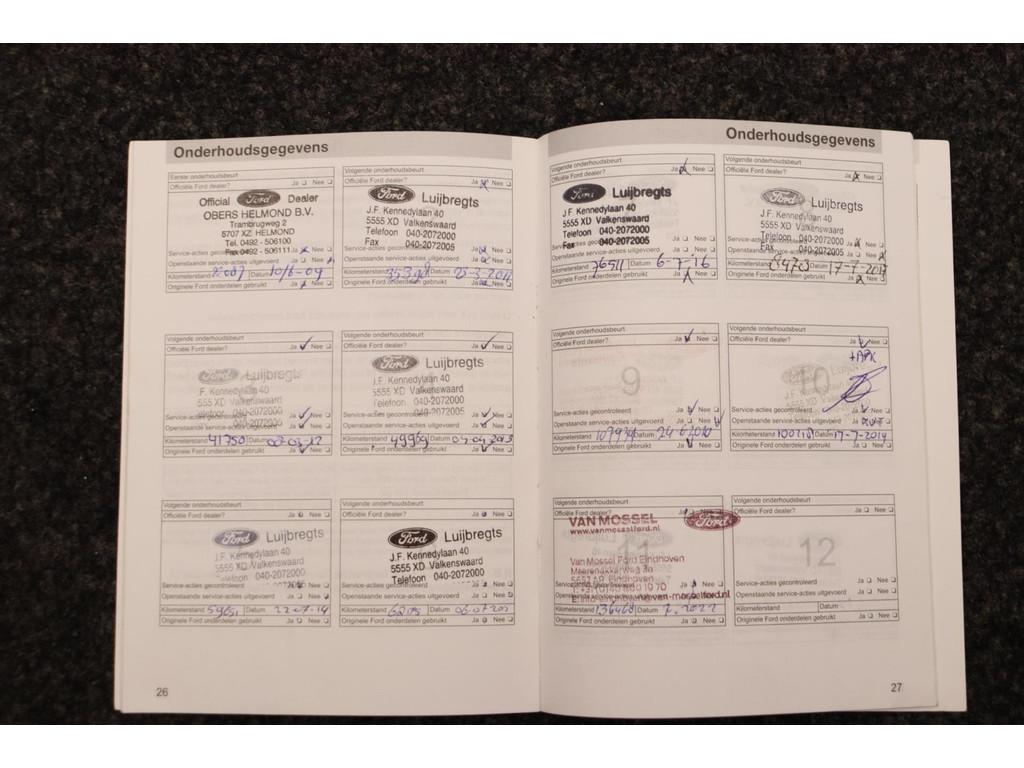 Onderhoudsgegevens
Eerste onderhoudsbeurt
Officiële Ford dealer? Ja Nee
Official Ford Dealer
OBERS HELMOND B.V.
Trambrugweg 2
5707 XZ HELMOND
Tel. 0492 - 506100
Fax 0492 - 506111 Ja Nee
Openstaande service-acties uitgevoerd Ja Nee
Kilometerstand Datum 10/6-09
Originele Ford onderdelen gebruikt Ja Nee
Volgende onderhoudsbeurt
Officiële Ford dealer? Ja Nee
Ford Luijbregts
J.F. Kennedylaan 40
5555 XD Valkenswaard
Telefoon 040-2072000
Fax 040-2072005
Service-acties gecontroleerd Ja Nee
Openstaande service-acties uitgevoerd Ja Nee
Kilometerstand Datum 25-3-2011
Originele Ford onderdelen gebruikt Ja Nee
Volgende onderhoudsbeurt
Officiële Ford dealer? Ja Nee
Ford Luijbregts
F. Kennedylaan 40
5555 XD Valkenswaard
Telefoon 040-2072000
Service-acties gecontroleerd Ja Nee
Openstaande service-acties uitgevoerd Ja Nee
Kilometerstand 41750 Datum
Originele Ford onderdelen gebruikt Ja Nee
Volgende onderhoudsbeurt
Officiële Ford dealer? Ja Nee
Ford Luijbregts
J.F. Kennedylaan 40
5555 XD Valkenswaard
Telefoon 040-2072000
040-2072005
Service-acties gecontroleerd Ja Nee
Openstaande service-acties uitgevoerd Ja Nee
Kilometerstand Datum 04-04-2013
Originele Ford onderdelen gebruikt Ja Nee
Volgende onderhoudsbeurt
Officiële Ford dealer? Ja Nee
Ford Luijbregts
J.F. Kennedylaan 40
5555 XD Valkenswaard
Telefoon 040-2072000
Service-acties gecontroleerd Ja Nee
Openstaande service-acties uitgevoerd Ja Nee
Kilometerstand Datum 22-07-14
Originele Ford onderdelen gebruikt Ja Nee
Volgende onderhoudsbeurt
Officiële Ford dealer? Ja Nee
Ford Luijbregts
J.F. Kennedylaan 40
5555 XD Valkenswaard
Telefoon 040-2072000
Service-acties gecontroleerd Ja Nee
Openstaande service-acties uitgevoerd Ja Nee
Kilometerstand Datum
Originele Ford onderdelen gebruikt Ja Nee
26
Onderhoudsgegevens
Volgende onderhoudsbeurt
Officiële Ford dealer? Ja Nee
Ford Luijbregts
J.F. Kennedylaan 40
5555 XD Valkenswaard
Telefoon 040-2072000
Fax 040-2072005
Ja Nee
Openstaande service-acties uitgevoerd Ja Nee
Kilometerstand 76511 Datum 6-7-16
Originele Ford onderdelen gebruikt Ja Nee
Volgende onderhoudsbeurt
Officiële Ford dealer? Ja Nee
Ford Luijbregts
J.F. Kennedylaan 40
5555 XD Valkenswaard
Telefoon 040-2072000
Fax 040-2072005
Ja Nee
Openstaande service-acties uitgevoerd Ja Nee
Kilometerstand Datum 17-7-2017
Originele Ford onderdelen gebruikt Ja Nee
Volgende onderhoudsbeurt
Officiële Ford dealer? Ja Nee
9
Service-acties gecontroleerd Ja Nee
Openstaande service-acties uitgevoerd Ja Nee
Kilometerstand Datum
Originele Ford onderdelen gebruikt Ja Nee
Volgende onderhoudsbeurt
Officiële Ford dealer? Ja Nee
+APK
10
Service-acties gecontroleerd Ja Nee
Openstaande service-acties uitgevoerd Ja
Kilometerstand Datum 17-7-2019
Originele Ford onderdelen gebruikt Ja Nee
Volgende onderhoudsbeurt
Officiële Ford dealer? Ja Nee
VAN MOSSEL Ford
www.vanmosselford.nl
11
Van Mossel Ford Eindhoven
Meerenakkerweg
Eindhoven
Ja Nee
Kilometerstand 136468 Datum
Originele Ford onderdelen gebruikt Ja Nee
Volgende onderhoudsbeurt
Officiële Ford dealer? Ja Nee
12
Service-acties gecontroleerd Ja Nee
Openstaande service-acties uitgevoerd Ja Nee
Kilometerstand Datum
Originele Ford onderdelen gebruikt Ja Nee
27